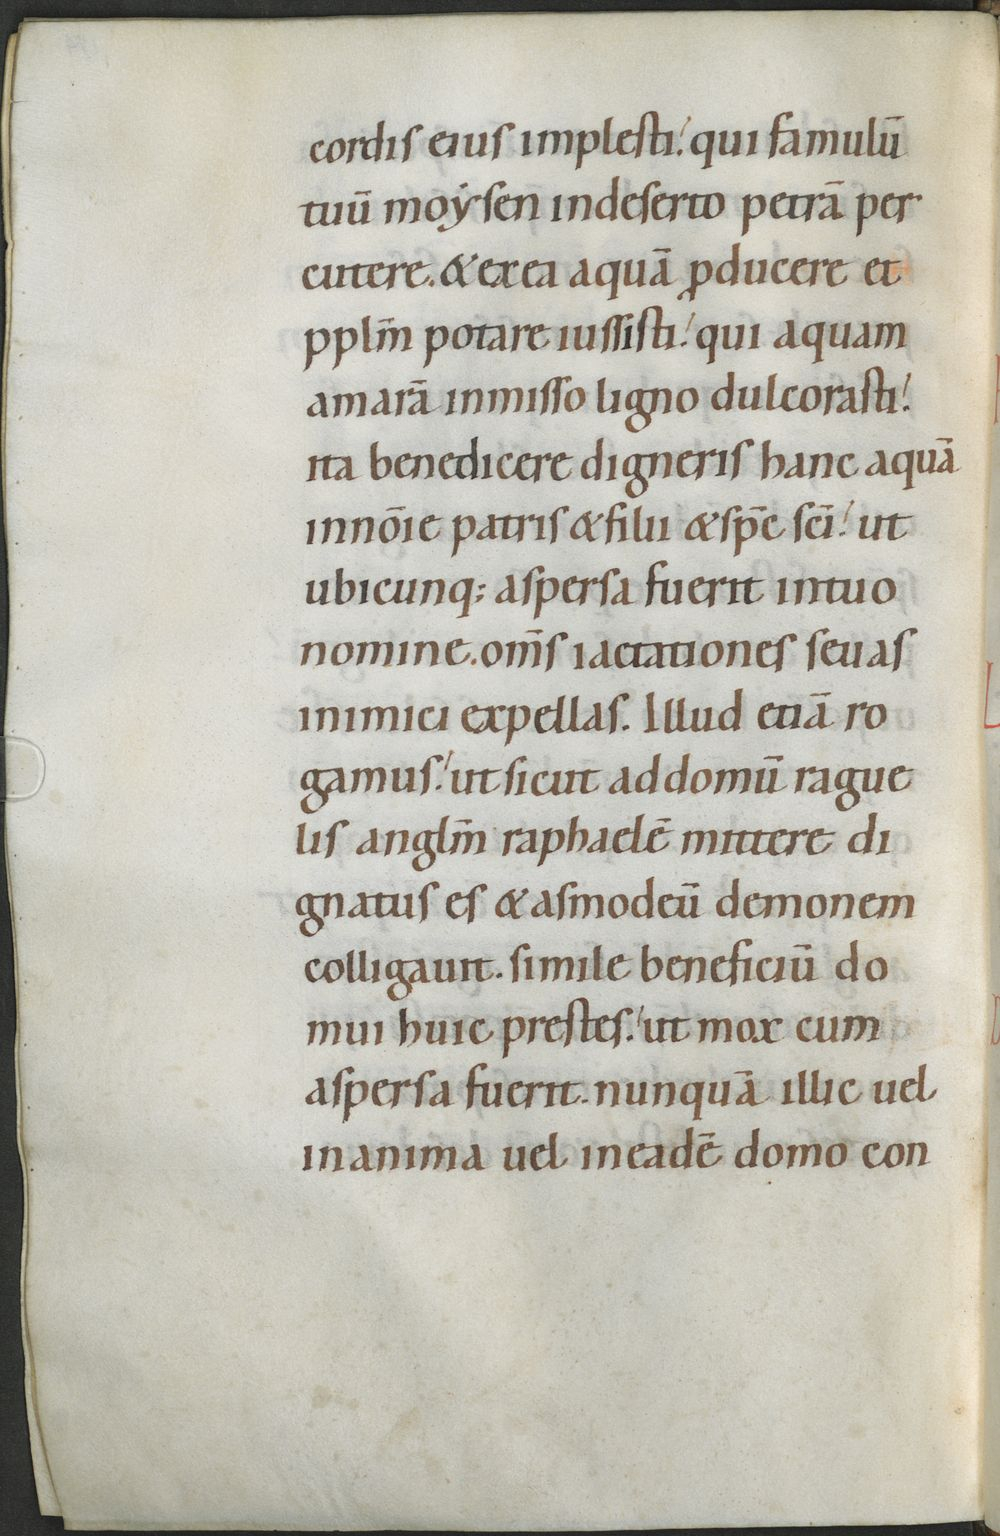 cordis eius implesti. qui famulū
tuū moẏsen indeserto petrā per
cutere. & exea aquā ꝓducere et
pplm̄ potare iussisti. qui aquam
amarā inmisso ligno dulcorasti.
ita benedicere digneris hanc aquā
innōie patris & filii & sp̄c sc̄i. ut
ubicunq; aspersa fuerit intuo
nomine. om̄s iactationes seuas
inimici expellas. Illud etiā ro
gamus. ut sicut addomū rague
lis anglm̄ raphaelē mittere di
gnatus es & asmodeū demonem
colligauit. simile beneficiū do
mui huic prestes. ut mox cum
aspersa fuerit. nunquā illic uel
inanima uel ineadē domo con